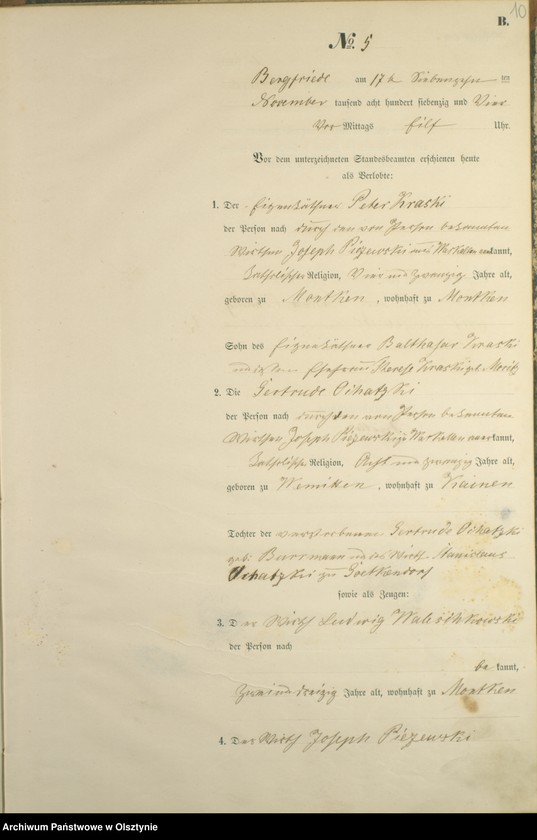 10
B.
No. 5
Bergfriede am 17 ten Siebenzehnten
November tausend acht hundert siebenzig und Vier
Vor Mittags Eilf Uhr.
Vor dem unterzeichneten Standesbeamten erschienen heute
als Verlobte:
1. Der Eigenkäthner Peter Kraski
der Person nach durch den von Person bekannten
Wirthen Joseph aus kannt,
katholischer Religion, Vier und zwanzig Jahre alt,
geboren zu Montken, wohnhaft zu Montken
Sohn des Eigenkäthner Balthasar Kraski
und Ehefrau Therese Kraski geb. Moritz
2. Die Gertrude
der Person nach durch den von Person bekannten
Wirthen Joseph kannt,
katholischer Religion, Acht und zwanzig Jahre alt,
geboren zu Wemitten, wohnhaft zu Kainen
Tochter der verstorbenen Gertrude
geb. Burrmann und des Wirth Stanislaus
zu
sowie als Zeugen:
3. Der Wirth Ludwig
der Person nach
bekannt,
Zwei und dreizig Jahre alt, wohnhaft zu Montken
4. Der Wirth Joseph
Archiwum Państwowe w Olsztynie